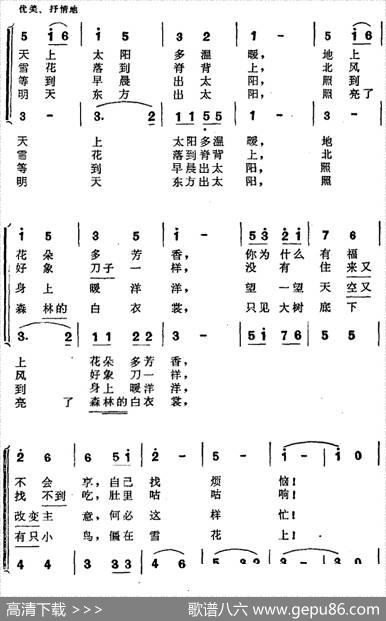 优美、抒情地
5 i6 3 5 2 3 1 - 5 i6
天上 太阳 多温 暖, 地上
雪花 落到 脊背 上, 北风
等到 早晨 出太 阳, 照到
明天 东方 出太 阳, 照亮了
3 - 3. 2 11 55 1 - 3 -
天 上 太阳多温 暖, 地
雪 花 落到脊背 上, 北
等 到 早晨出太 阳, 照
明 天 东方出太 阳, 照
i 5 3 5 i - 53 2i 7 6
花朵 多芳 香, 你为什么 有福
好象 刀子一 样, 没有 住来又
身上 暖洋 洋, 望一望 天空又
森林的 白衣 裳, 只见大树 底下
3. 2 11 22 3 - 5i 76 5 5
上 花朵多芳 香,
风 好象刀一 样,
到 身上暖洋 洋,
亮了 森林的白衣 裳,
2 6 6 5i 2 - 5 - i - i 0
不会 享,自己 找 烦 恼!
找不到 吃,肚里 咕 咕 响!
改变主 意,何必 这 样 忙!
有只小 鸟,僵在 雪 花 上!
4 4 3 33 2 - 5 5 5 5 i - i 0
高清下载 >>>
歌谱八六 www.gepu86.com